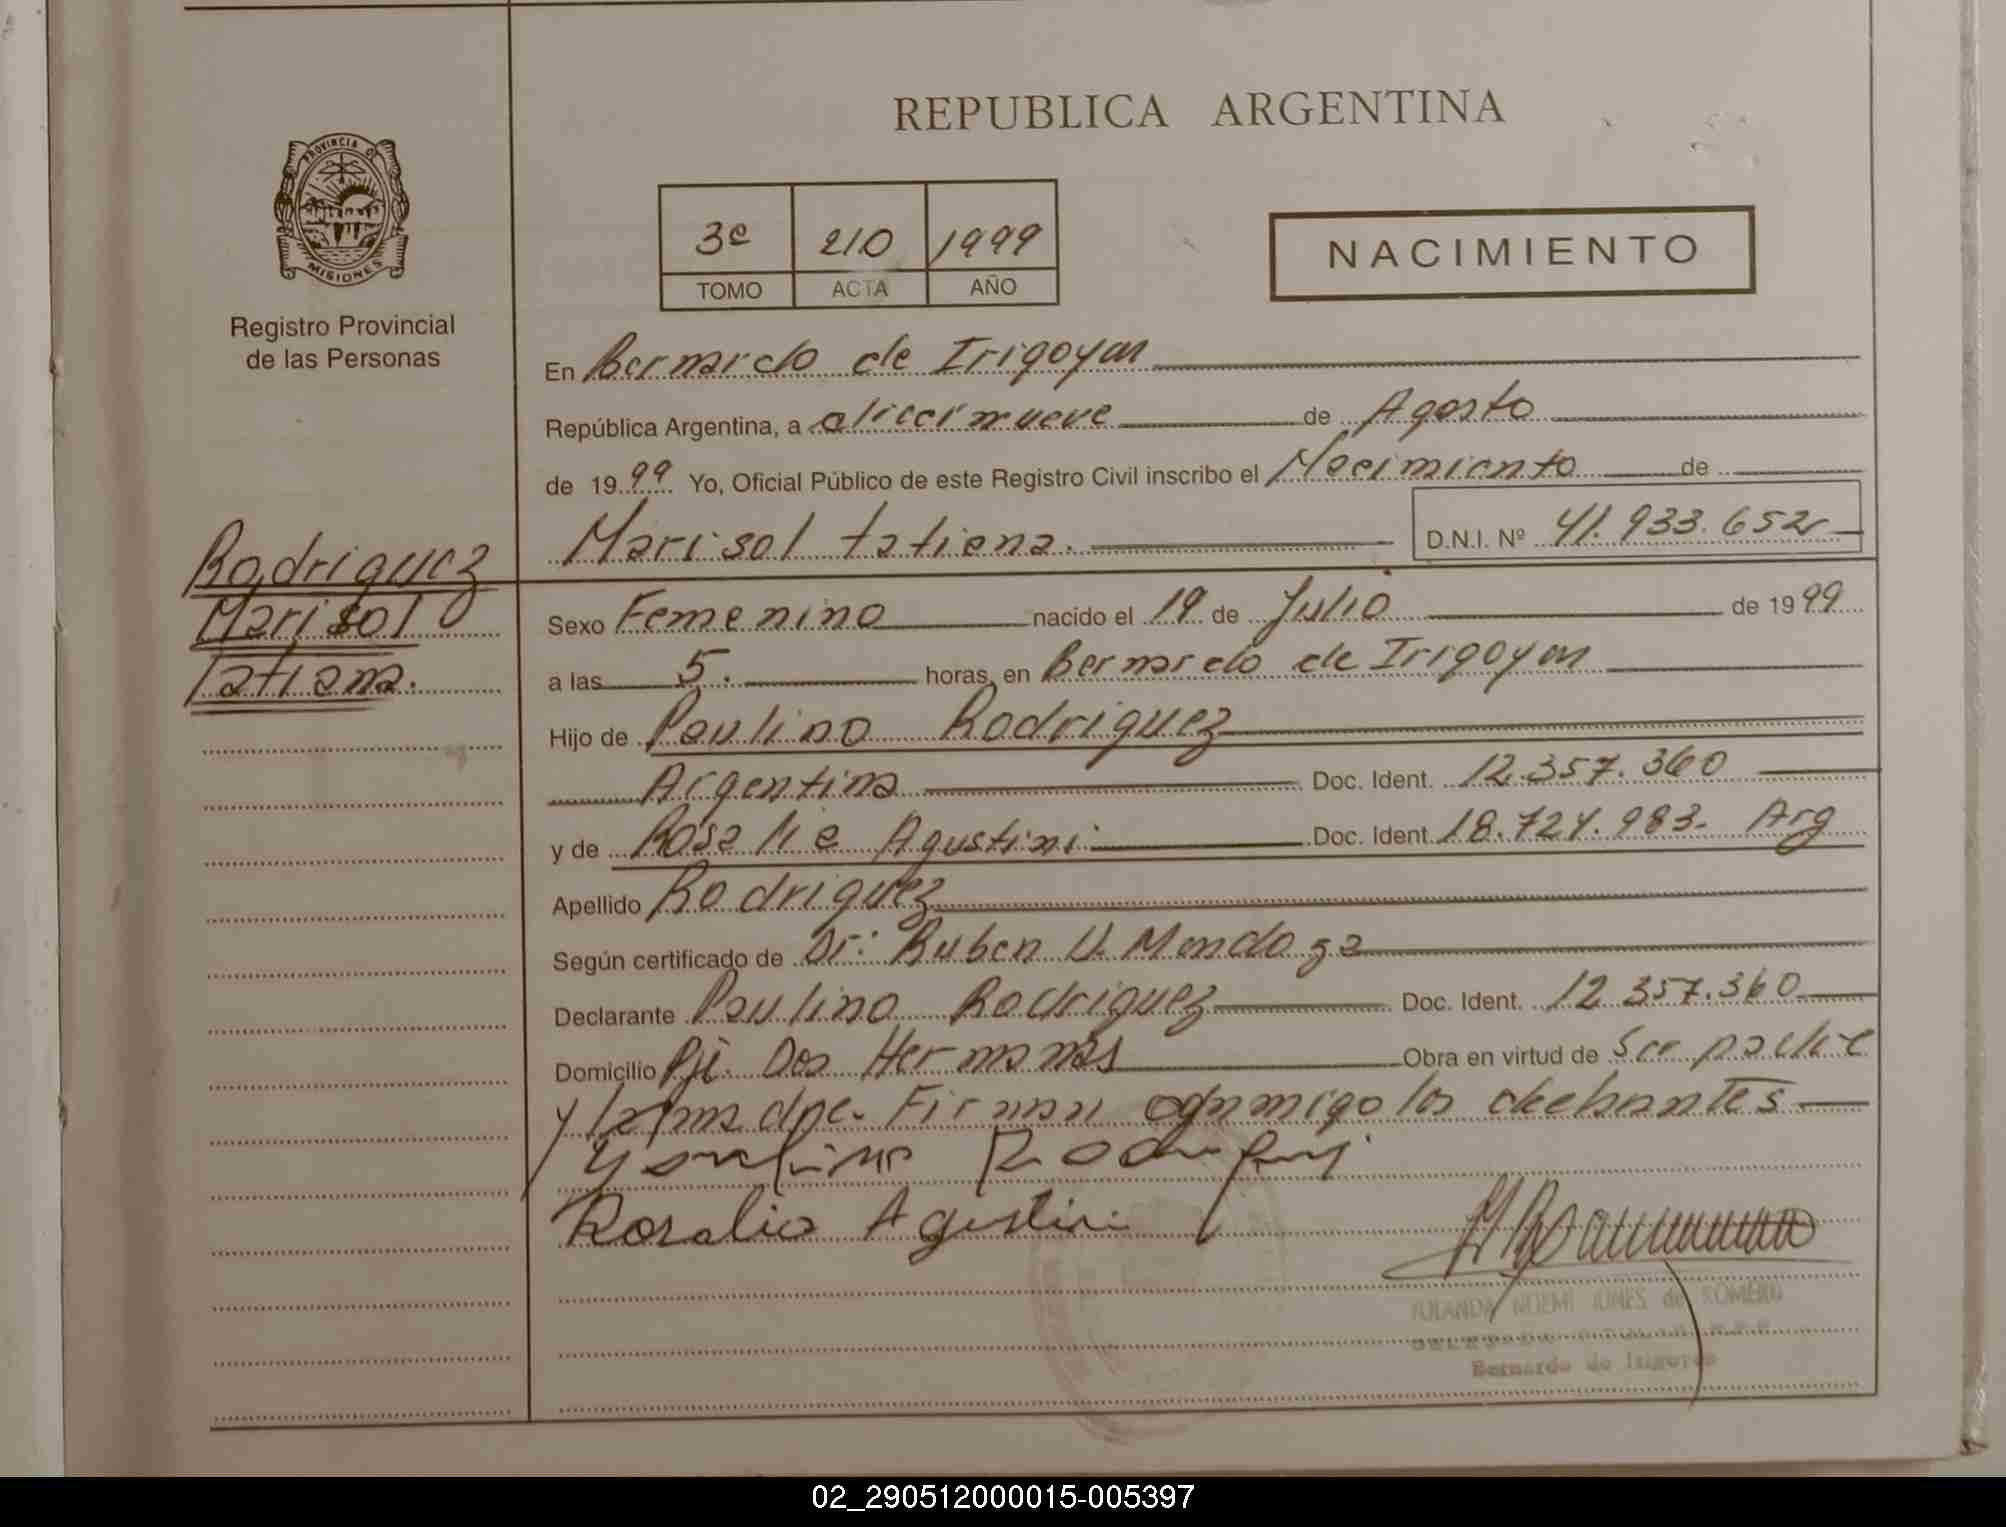 REPUBLICA ARGENTINA
PROVINCIA D
MISIONES
Registro Provincial
de las Personas
3e 210 1999
TOMO ACTA AÑO
NACIMIENTO
En Bernardo de Irigoyen
República Argentina, a diecinueve de Agosto
de 1999 Yo, Oficial Público de este Registro Civil inscribo el Nacimiento de
Marisol tatiana. D.N.I. Nº 41.933.652
Rodriguez
Marisol
Tatiana.
Sexo Femenino nacido el 19 de Julio de 1999
a las 5. horas, en Bernardo de Irigoyen
Hijo de Paulino Rodriguez
Argentina Doc. Ident. 12.357.360
y de Rosalia Agustini Doc. Ident. 18.724.983- Arg
Apellido Rodriguez
Según certificado de Dr: Ruben U. Mendoza
Declarante Paulino Rodriguez Doc. Ident. 12 357.360
Domicilio Pje. Dos Hermanas Obra en virtud de Ser padre
y la madre. Firman conmigo los declarantes
Rodriguez
Rosalia Agustini
YOLANDA NOEMI de ROMERO
Bernardo de Irigoyen
02_290512000015-005397